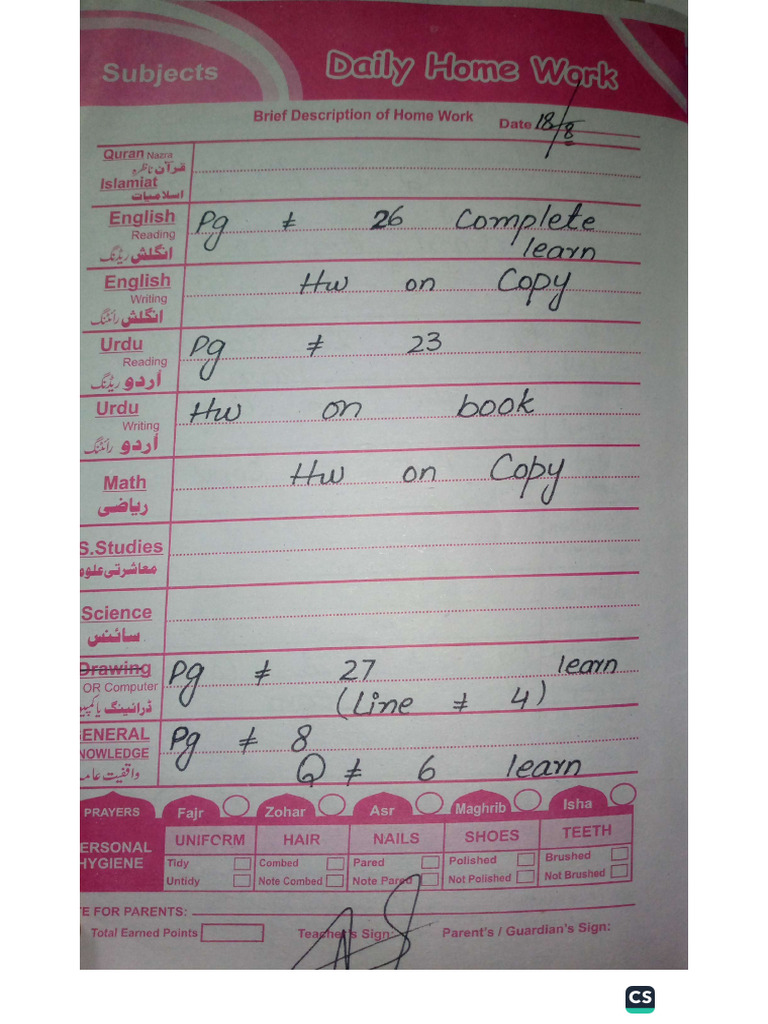 Subjects
Daily Home Work
Brief Description of Home Work
Date 18/8
Quran Nazra
قرآن ناظرہ
Islamiat
اسلامیات
English Pg # 26 Complete
Reading learn
انگلش ریڈنگ
English Hw on Copy
Writing
انگلش رائٹنگ
Urdu Pg # 23
Reading
اُردو ریڈنگ
Urdu Hw on book
Writing
اُردو رائٹنگ
Math Hw on Copy
ریاضی
S.Studies
معاشرتی علوم
Science
سائنس
Drawing Pg # 27 learn
OR Computer (Line # 4)
ڈرائینگ یا کمپی
GENERAL Pg # 8
NOWLEDGE Q # 6 learn
واقفیت عامہ
PRAYERS Fajr Zohar Asr Maghrib Isha
ERSONAL HYGIENE UNIFORM HAIR NAILS SHOES TEETH
Tidy Combed Pared Polished Brushed
Untidy Note Combed Note Pared Not Polished Not Brushed
TE FOR PARENTS:
Total Earned Points Teacher's Sign: Parent's / Guardian's Sign:
CS